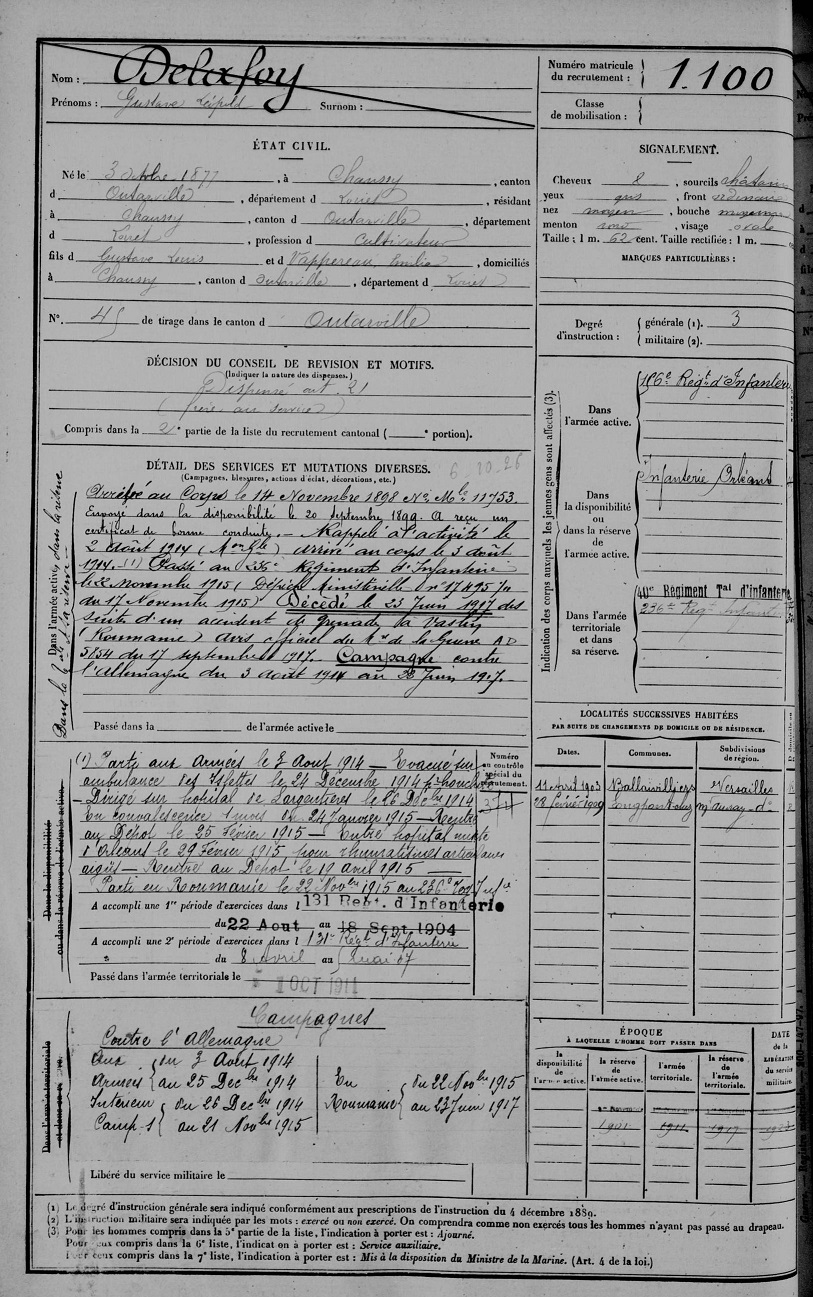 Nom : Delafoy
Prénoms : Gustave Léopold Surnom :
Numéro matricule du recrutement : 1.100
Classe de mobilisation :
ÉTAT CIVIL.
Né le 3 octobre 1877, à Chaussy, canton
d Outarville, département d Loiret, résidant
à Chaussy, canton d Outarville, département
d Loiret, profession d Cultivateur
fils d Gustave Louis et d Vappereau, Emilie, domiciliés
à Chaussy, canton d Outarville, département d Loiret
N°. 45 de tirage dans le canton d Outarville
SIGNALEMENT.
Cheveux , sourcils châtain
yeux gris, front ordinaire
nez moyen, bouche moyenne
menton rond, visage ovale
Taille : 1 m. 62 cent. Taille rectifiée : 1 m.
MARQUES PARTICULIÈRES :
Degré d'instruction : générale (1). 3
militaire (2).
DÉCISION DU CONSEIL DE REVISION ET MOTIFS.
(Indiquer la nature des dispenses.)
Dispensé art. 21
(frère au service)
Compris dans la 2e partie de la liste du recrutement cantonal ( e portion).
DÉTAIL DES SERVICES ET MUTATIONS DIVERSES.
(Campagnes, blessures, actions d'éclat, décorations, etc.)
6-10-26
Arrivé au Corps le 14 Novembre 1898 No Mle 11753.
Envoyé dans la disponibilité le 20 septembre 1899. A reçu un
certificat de bonne conduite. — Rappelé à l'activité le
2 août 1914 (Mon Gle) arrivé au corps le 3 août
1914. (1) Passé au 236e Régiment d'Infanterie
le 22 novembre 1915 (Dépêche Ministérielle no 17495
du 17 Novembre 1915) Décédé le 23 Juin 1917 des
suites d'un accident de grenade à Vaslui
(Roumanie) avis officiel du Mre de la Guerre AD
5854 du 17 septembre 1917. Campagne contre
l'Allemagne du 3 août 1914 au 23 Juin 1917.
Passé dans la de l'armée active le
Dans l'armée active
Indication des corps auxquels les jeunes gens sont affectés (3).
Dans l'armée active. Regt d'Infanterie
Dans la disponibilité ou dans la réserve de l'armée active. Infanterie Orléans
Dans l'armée territoriale et dans sa réserve. 40e Régiment Tal d'infanterie
236e Regt Infant
LOCALITÉS SUCCESSIVES HABITÉES
PAR SUITE DE CHANGEMENTS DE DOMICILE OU DE RÉSIDENCE.
Dates. Communes. Subdivisions de région.
11 avril 1903 Ballainvilliers Versailles
28 février 1909 Longpont
(1) Parti aux Armées le 3 Aout 1914 — Evacué sur
ambulance des Islettes le 24 Décembre 1914 pr bronchite
— Dirigé sur hopital de Largentières le 26 Décbre 1914
En convalescence 1 mois du 24 Janvier 1915 — Rentré
au Dépot le 25 Février 1915 — Entré hopital mixte
d'Orléans le 29 Février 1915 pour rhumatismes articulaires
aigüs — Rentré au Dépot le 19 avril 1915
Parti en Roumanie le 22 Novbre 1915 au 236e
Numéro au contrôle spécial du recrutement.
Dans la disponibilité ou dans la réserve de l'armée active.
A accompli une 1re période d'exercices dans l 131 Regt. d'Infanterie
du 22 Aout au 18 Sept. 1904
A accompli une 2e période d'exercices dans l 131e Regt d'Infanterie
du 8 Avril au 07
Passé dans l'armée territoriale le 1 OCT 1911
Campagnes
Contre l'Allemagne
Aux Armées du 3 Aout 1914
au 25 Decbre 1914
Intérieur du 26 Decbre 1914
au 21 Novbre 1915
En Roumanie du 22 Novbre 1915
au 23 Juin 1917
Dans l'armée territoriale et dans sa rés.
Libéré du service militaire le
ÉPOQUE
À LAQUELLE L'HOMME DOIT PASSER DANS
la disponibilité de l'armée active. la réserve de l'armée active. l'armée territoriale. la réserve de l'armée territoriale.
DATE de la LIBÉRATION du service militaire.
1901 1911 1917
(1) Le degré d'instruction générale sera indiqué conformément aux prescriptions de l'instruction du 4 décembre 1889.
(2) L'instruction militaire sera indiquée par les mots : exercé ou non exercé. On comprendra comme non exercés tous les hommes n'ayant pas passé au drapeau.
(3) Pour les hommes compris dans la 5e partie de la liste, l'indication à porter est : Ajourné.
Pour ceux compris dans la 6e liste, l'indication à porter est : Service auxiliaire.
Pour ceux compris dans la 7e liste, l'indication à porter est : Mis à la disposition du Ministre de la Marine. (Art. 4 de la loi.)